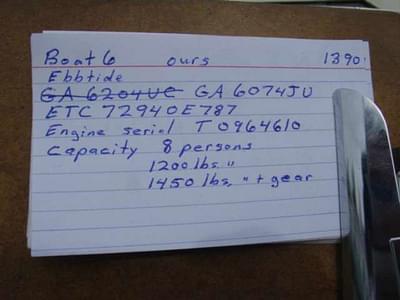 Boat 6 ours 1390
Ebbtide
GA 6204UC GA 6074JU
ETC 72940E787
Engine serial T0964610
Capacity 8 persons
1200 lbs "
1450 lbs, " + gear